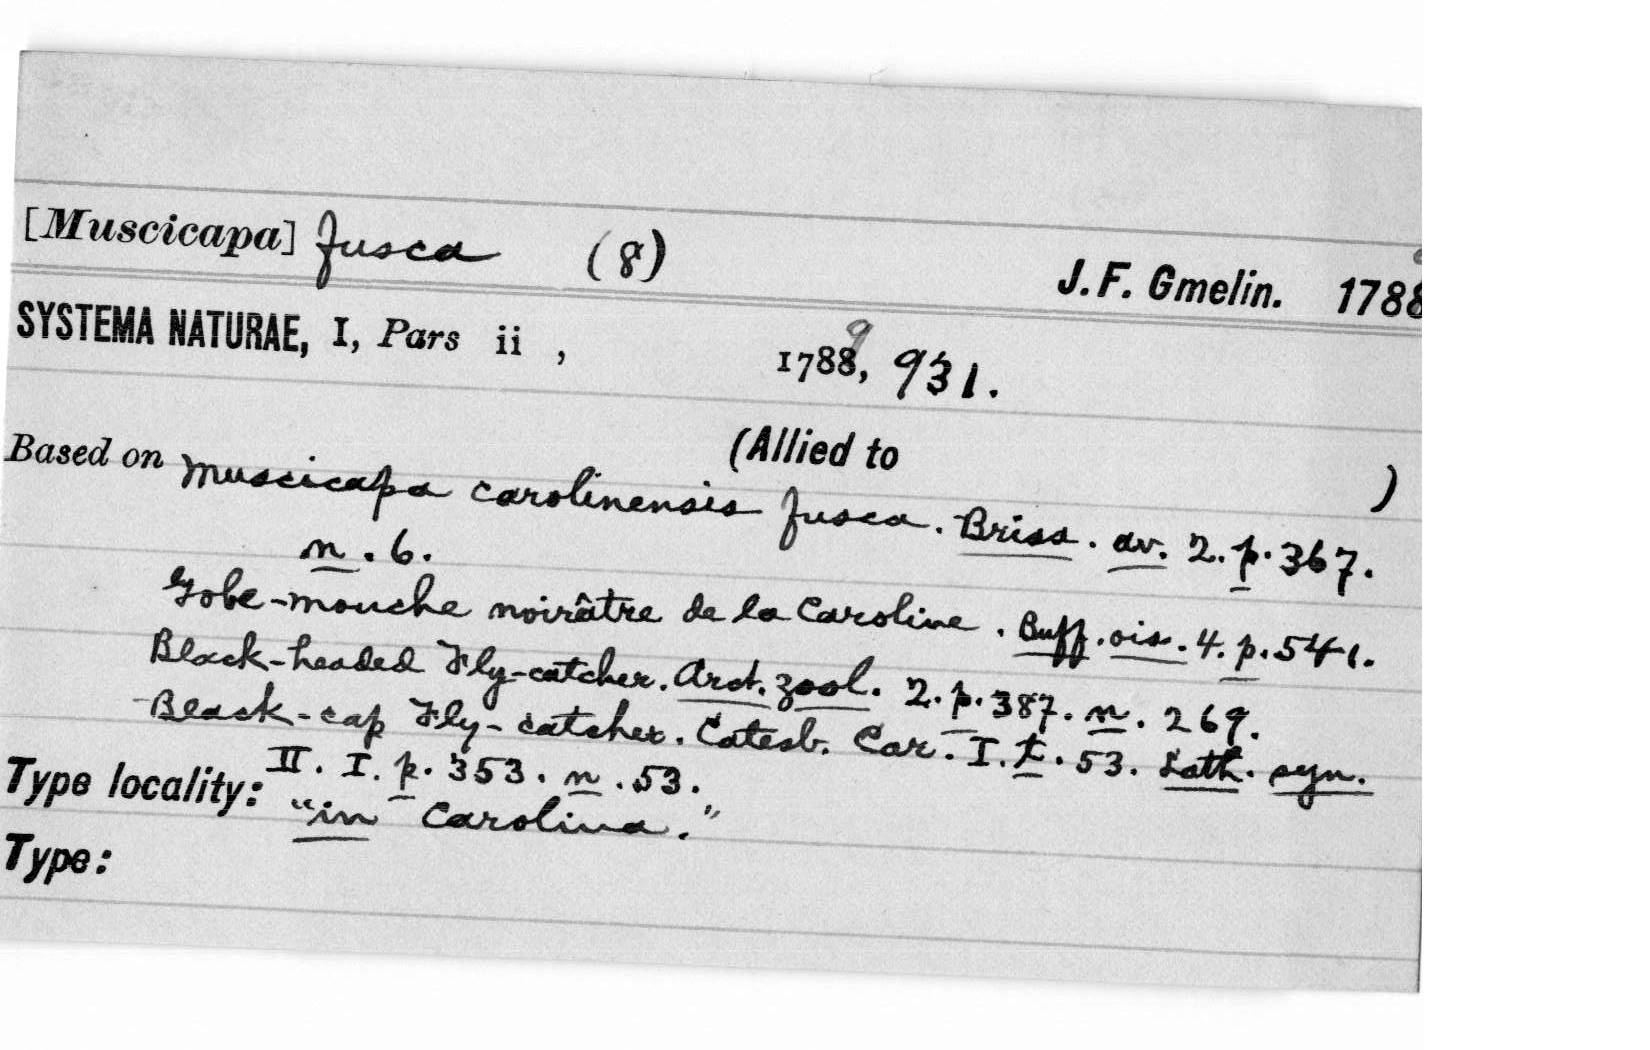 [Muscicapa] fusca (8)
J. F. Gmelin. 1788
SYSTEMA NATURAE, I, Pars ii , 1788, 9 931.
(Allied to )
Based on Muscicapa carolinensis fusca. Briss. av. 2. p. 367.
n. 6.
Gobe-mouche noirâtre de la Caroline. Buff. ois. 4. p. 541.
Black-headed Fly-catcher. Arct. zool. 2. p. 387. n. 269.
Black-cap Fly-catcher. Catesb. Car. I. t. 53. Lath. syn.
II. I. p. 353. n. 53.
Type locality: "in Carolina."
Type: